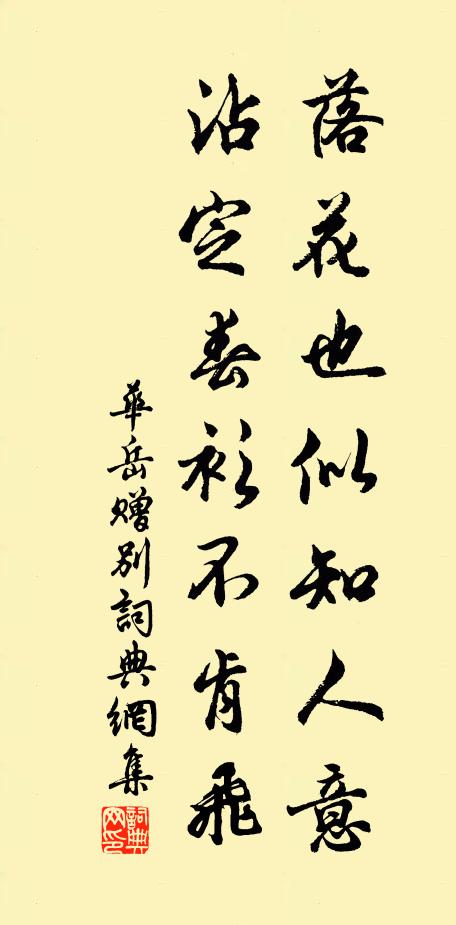 落花也似知人意
沾定春衫不肯飛
華岳贈別詞典網集
詞典網印